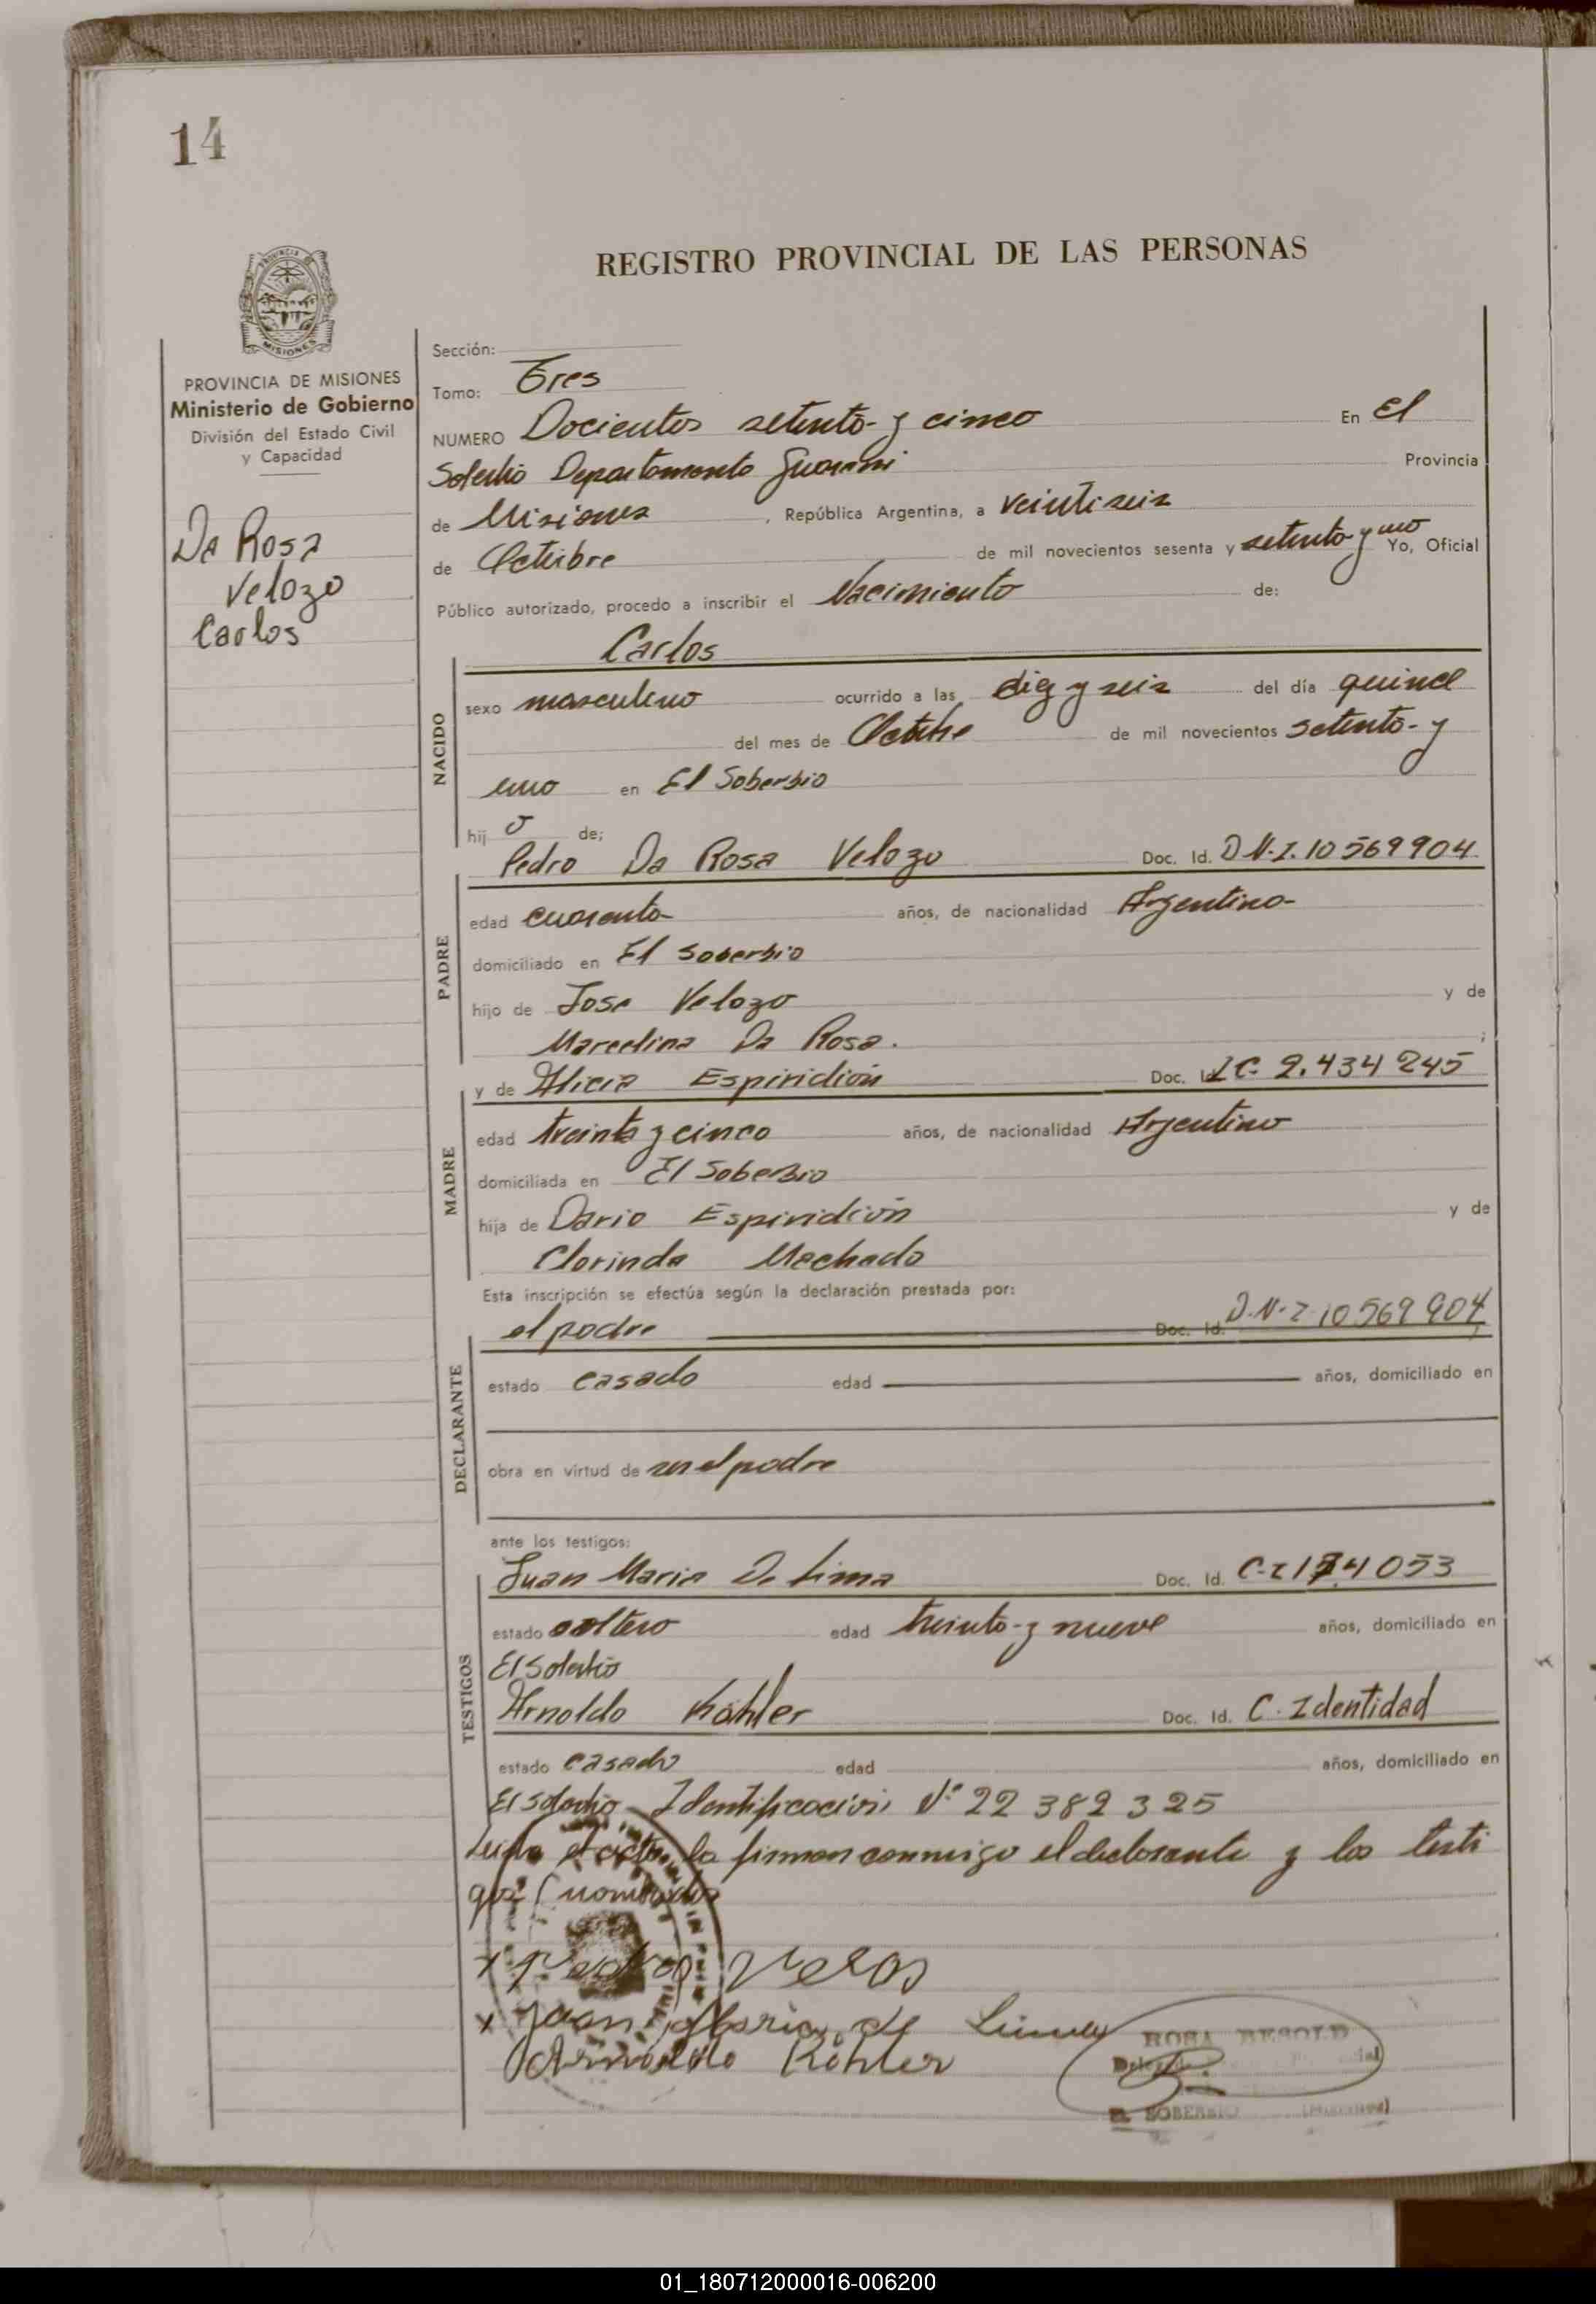 14
REGISTRO PROVINCIAL DE LAS PERSONAS
PROVINCIA DE MISIONES
MISIONES
PROVINCIA DE MISIONES
Ministerio de Gobierno
División del Estado Civil
y Capacidad
Da Rosa
Velozo
Carlos
Sección:
Tomo: Tres
NUMERO Docientos setenta y cinco En El
Soberbio Departamento Guarani Provincia
de Misiones, República Argentina, a veintiseis
de Octubre de mil novecientos sesenta y setenta y uno Yo, Oficial
Público autorizado, procedo a inscribir el Nacimiento de:
Carlos
NACIDO
sexo masculino ocurrido a las diez y seis del día quince
del mes de Octubre de mil novecientos setenta y
uno en El Soberbio
hij o de;
Pedro Da Rosa Velozo Doc. Id. D.N.I. 10 569 904
PADRE
edad cuarenta años, de nacionalidad Argentina
domiciliado en El Soberbio
hijo de Jose Velozo y de
Marcelina Da Rosa. ;
y de Alicia Espiridión Doc. Id. LC. 2.434 245
MADRE
edad treinta y cinco años, de nacionalidad Argentina
domiciliada en El Soberbio
hija de Dario Espiridión y de
Clorinda Machado
Esta inscripción se efectúa según la declaración prestada por:
el padre Doc. Id. D.N.I. 10 569 904
DECLARANTE
estado casado edad años, domiciliado en
obra en virtud de ser el padre
ante los testigos:
Juan Maria De Lima Doc. Id. C.I 174 053
TESTIGOS
estado soltero edad treinta y nueve años, domiciliado en
El Soberbio
Arnoldo Köhler Doc. Id. C. Identidad
estado casado edad años, domiciliado en
El Soberbio Identificación Nº 22 382 325
Leida el acta, la firman conmigo el declarante y los testi
gos nombrados
x Pedro Velos
x Juan Maria de Lima
Arnoldo Köhler
ROSA BESOLD
EL SOBERBIO (Misiones)
01_180712000016-006200